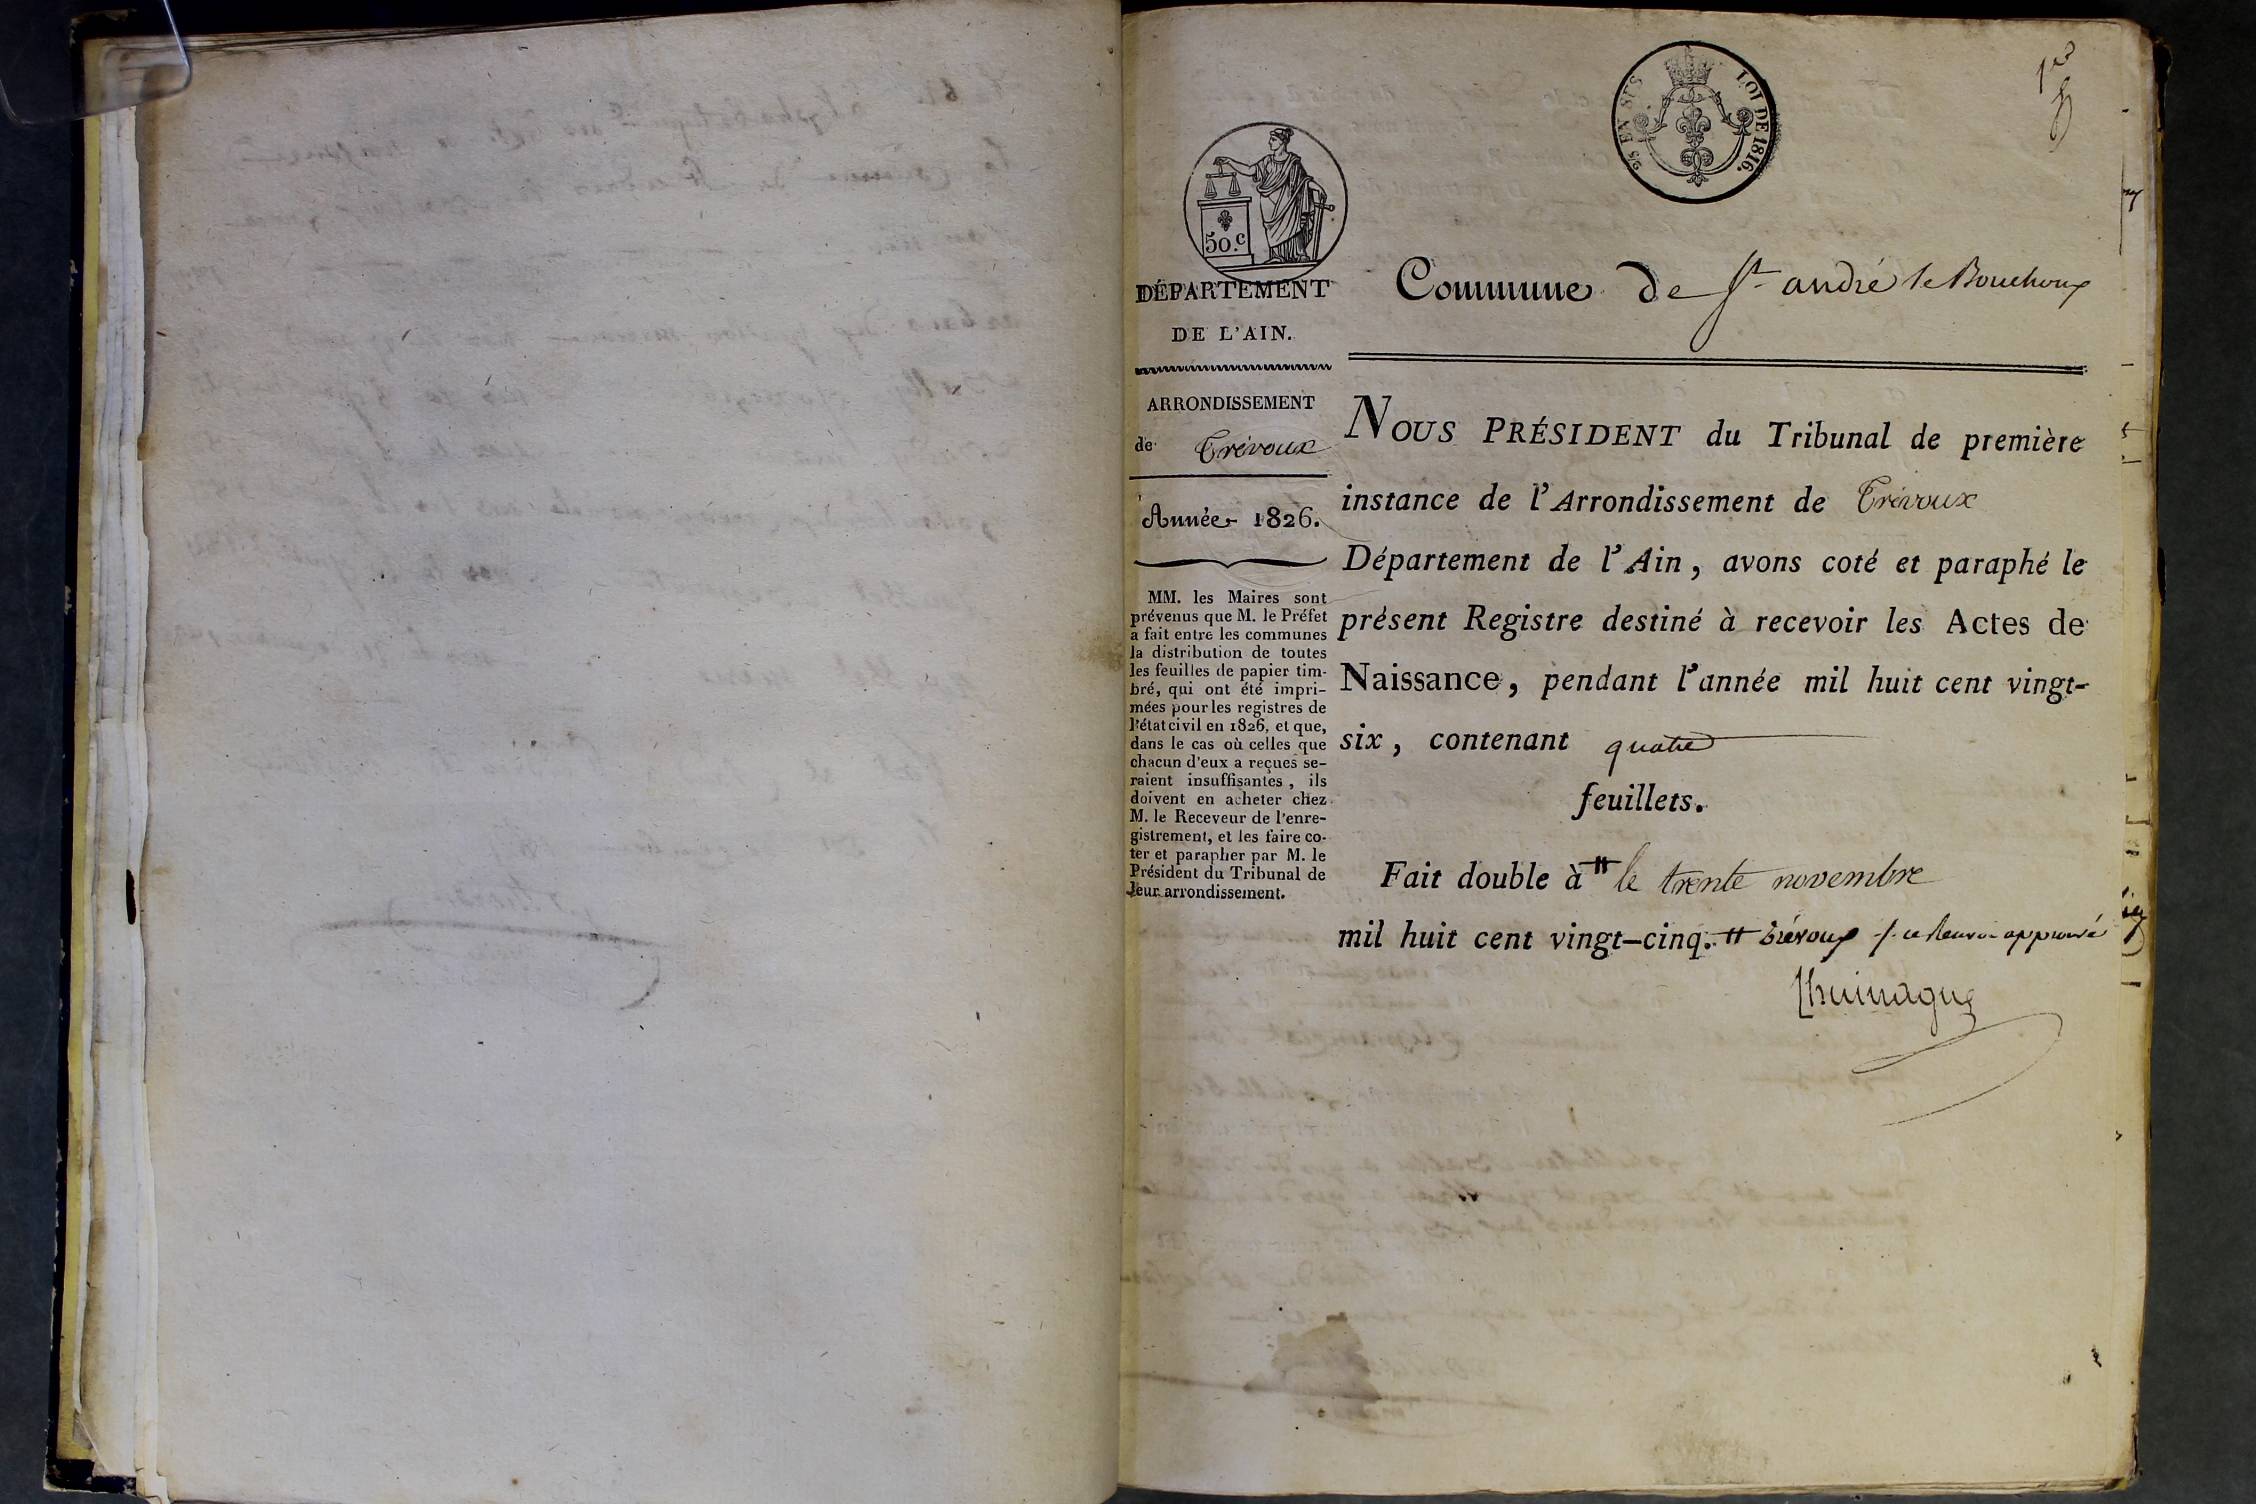 2/5 EN SUS
LOI DE 1816.
1er
50.c
DÉPARTEMENT
DE L'AIN.
ARRONDISSEMENT
de Trévoux
Année 1826.
MM. les Maires sont
prévenus que M. le Préfet
a fait entre les communes
la distribution de toutes
les feuilles de papier tim-
bré, qui ont été impri-
mées pour les registres de
l'état civil en 1826, et que,
dans le cas où celles que
chacun d'eux a reçues se-
raient insuffisantes, ils
doivent en acheter chez
M. le Receveur de l'enre-
gistrement, et les faire co-
ter et parapher par M. le
Président du Tribunal de
leur arrondissement.
Commune de St andré le Bouchoux
NOUS PRÉSIDENT du Tribunal de première
instance de l'Arrondissement de Trévoux
Département de l'Ain, avons coté et paraphé le
présent Registre destiné à recevoir les Actes de
Naissance, pendant l'année mil huit cent vingt-
six, contenant quatre
feuillets.
Fait double à # le trente novembre
mil huit cent vingt-cinq. # trévoux /. ce Renvoi approuvé